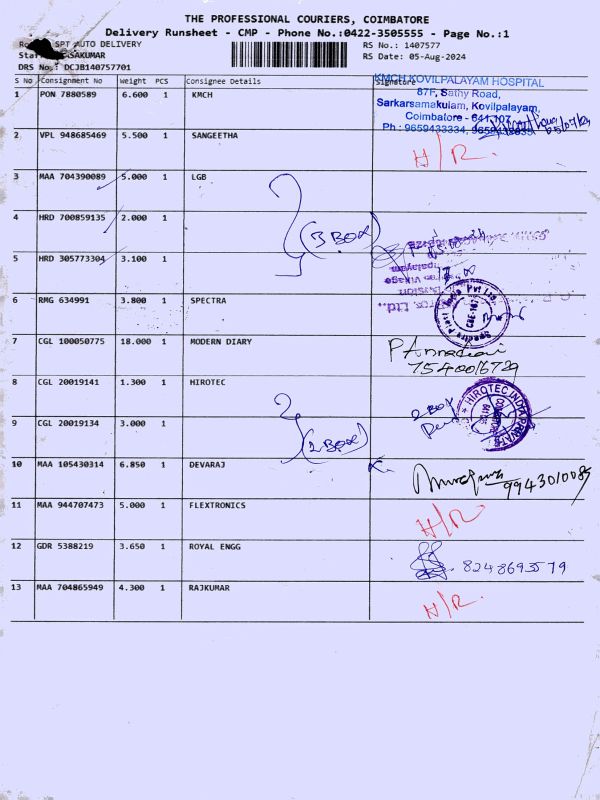 THE PROFESSIONAL COURIERS, COIMBATORE
Delivery Runsheet - CMP - Phone No.:0422-3505555 - Page No.:1
SPT AUTO DELIVERY
RS No.: 1407577
RS Date: 05-Aug-2024
DRS No.: DCJB140757701
S No Consignment No Weight PCS Consignee Details Signature
KMCH KOVILPALAYAM HOSPITAL
87F, Sathy Road,
Sarkarsamakulam, Kovilpalayam,
Coimbatore - 641 107
Ph : 9659433334,
1 PON 7880589 6.600 1 KMCH
2 VPL 948685469 5.500 1 SANGEETHA
H/R.
3 MAA 704390089 5.000 1 LGB
4 HRD 700859135 2.000 1
(3 BOX)
5 HRD 305773304 3.100 1
6 RMG 634991 3.800 1 SPECTRA
7 CGL 100050775 18.000 1 MODERN DIARY
8 CGL 20019141 1.300 1 HIROTEC
2 BOX
HIROTEC INDIA PRIVATE
9 CGL 20019134 3.000 1
(2 BOX)
10 MAA 105430314 6.850 1 DEVARAJ
9943010085
11 MAA 944707473 5.000 1 FLEXTRONICS
H/R
12 GDR 5388219 3.650 1 ROYAL ENGG
8248693579
13 MAA 704865949 4.300 1 RAJKUMAR
H/R.